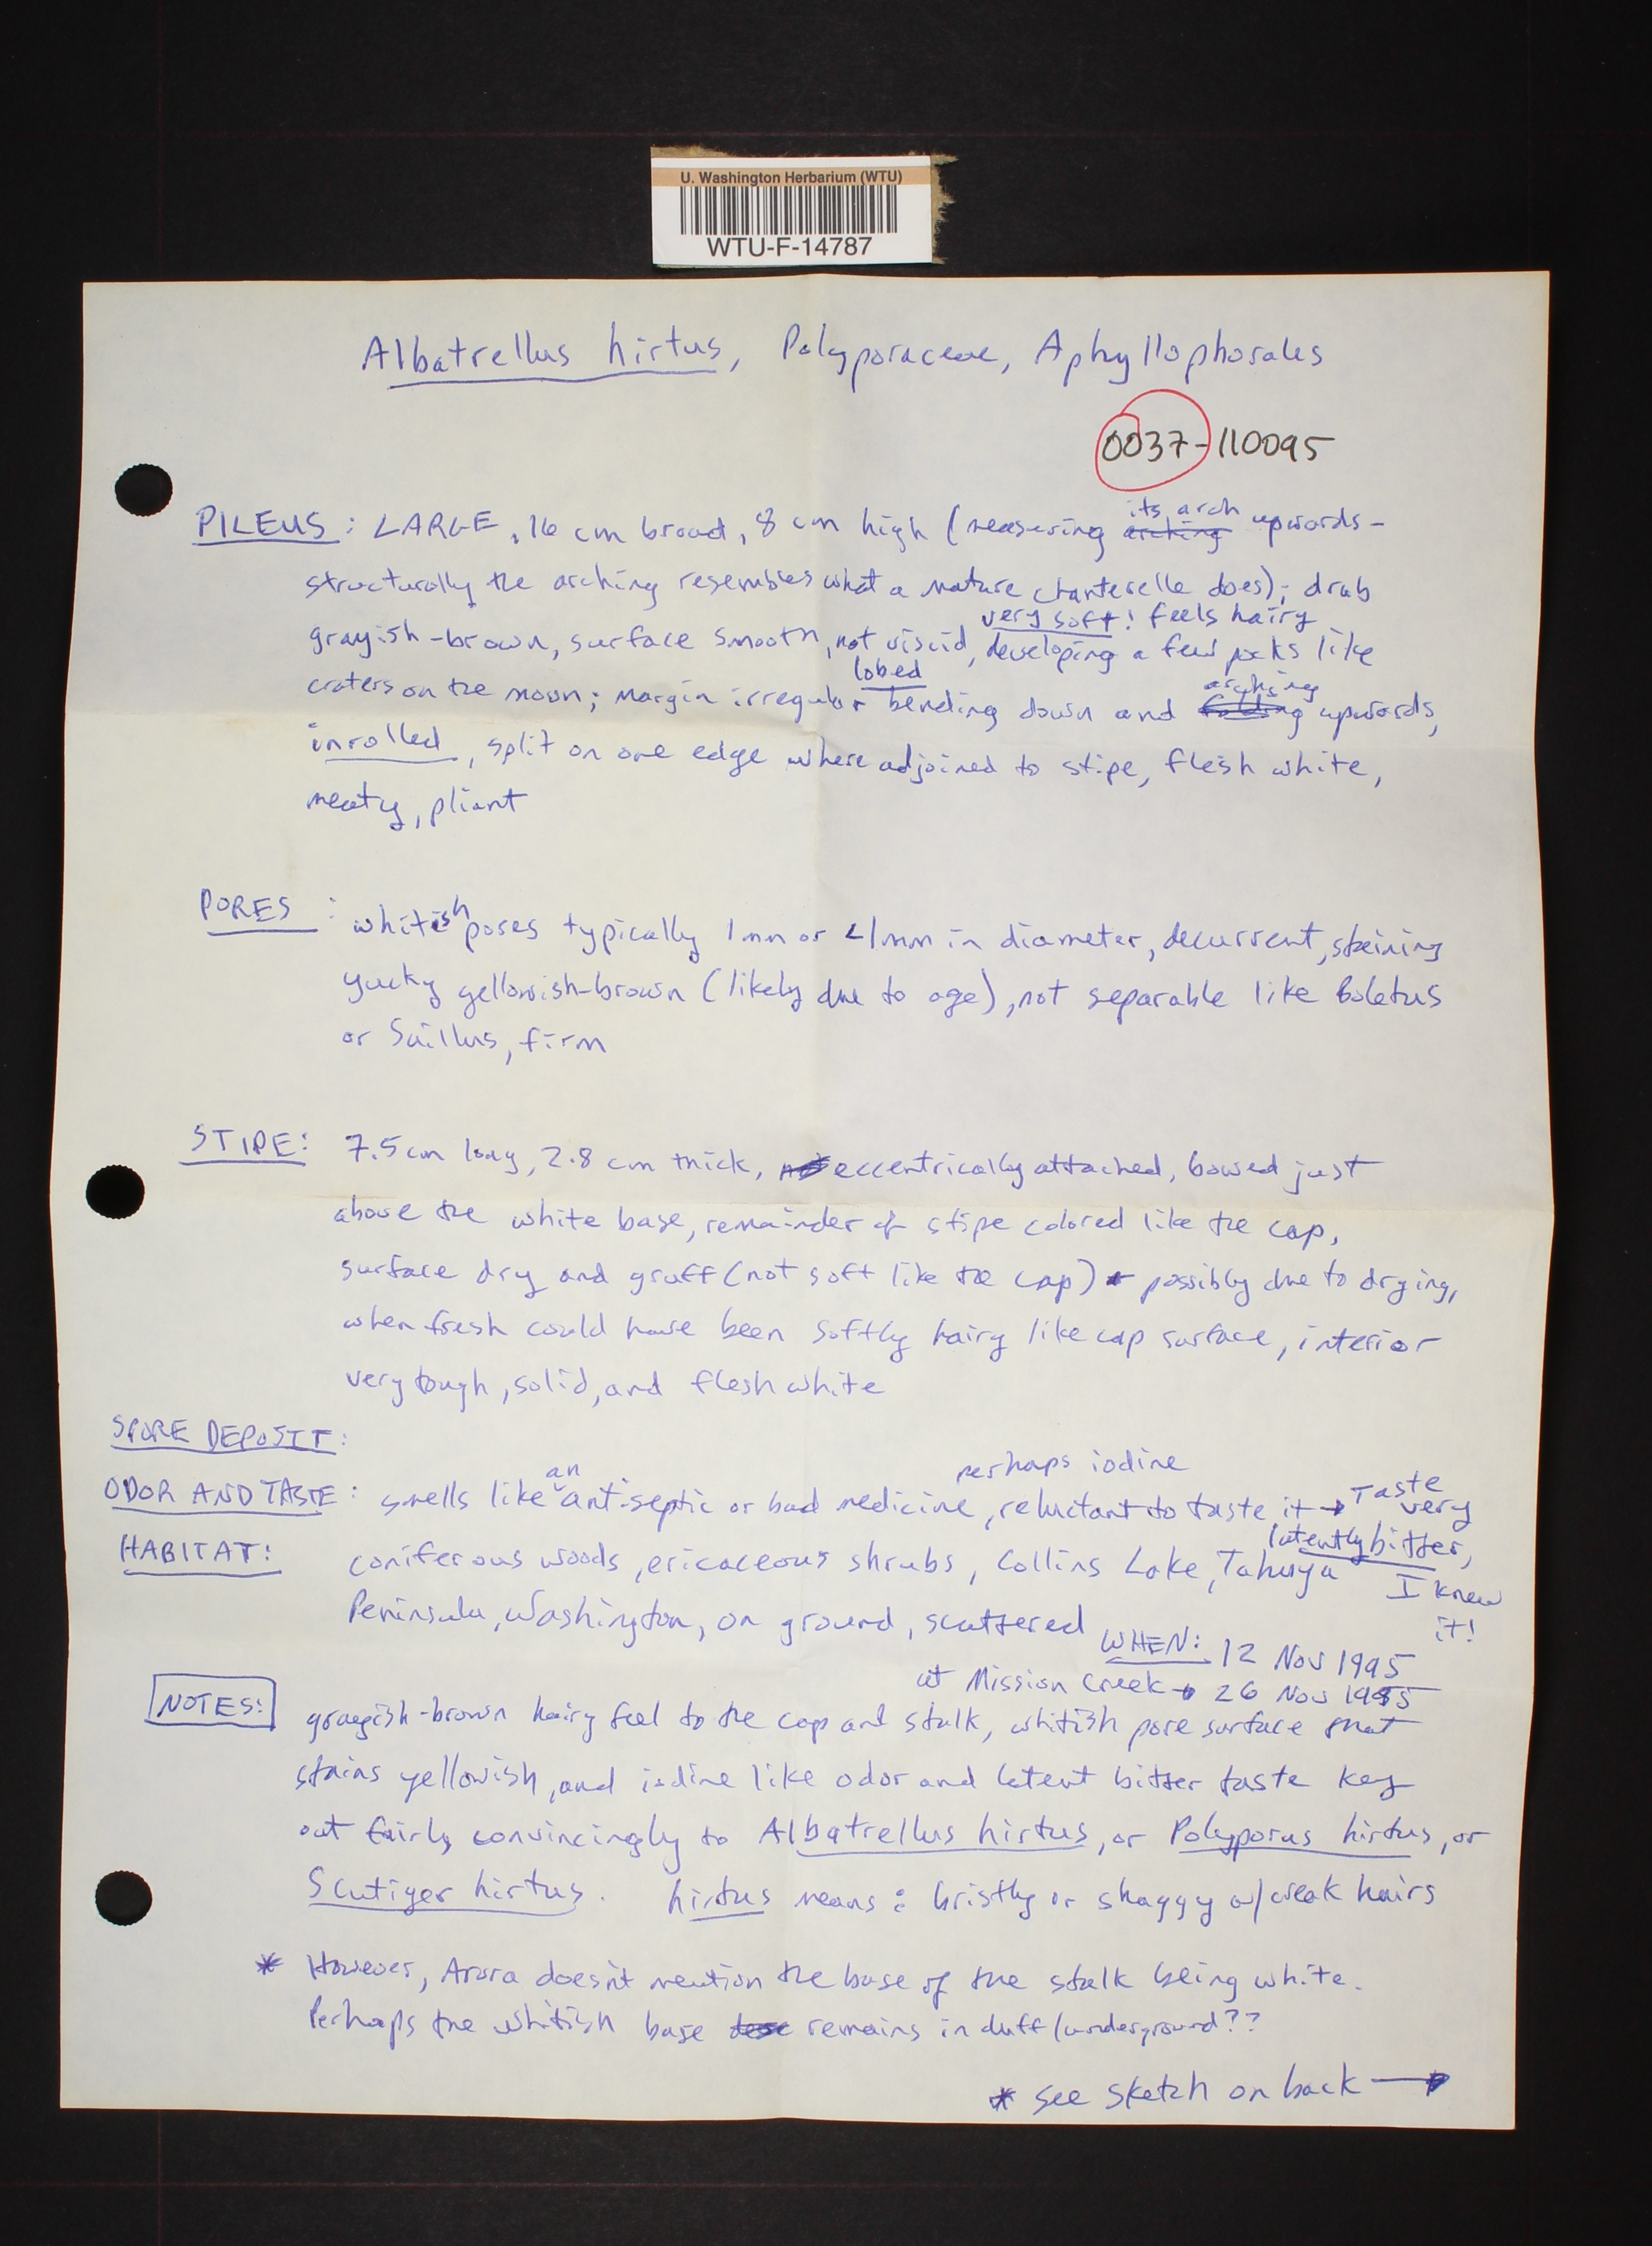 U. Washington Herbarium (WTU)
WTU-F-14787
Albatrellus hirtus, Polyporaceae, Aphyllophorales
0037-110095
PILEUS: LARGE, 16 cm broad, 8 cm high (measuring arching its arch upwards-
structurally the arching resembles what a mature chanterelle does); drab
very soft! feels hairy
grayish-brown, surface smooth, not viscid, developing a few pocks like
lobed
craters on the moon; margin irregular bending down and arching upwards,
inrolled, split on one edge where adjoined to stipe, flesh white,
meaty, pliant
PORES: whitish pores typically 1mm or <1mm in diameter, decurrent, staining
yucky yellowish-brown (likely due to age), not separable like Boletus
or Suillus, firm
STIPE: 7.5 cm long, 2.8 cm thick, eccentrically attached, bowed just
above the white base, remainder of stipe colored like the cap,
surface dry and gruff (not soft like the cap) possibly due to drying,
when fresh could have been softly hairy like cap surface, interior
very tough, solid, and flesh white
SPORE DEPOSIT:
perhaps iodine
ODOR AND TASTE: smells like an antiseptic or bad medicine, reluctant to taste it → Taste very
latently bitter,
I knew
it!
HABITAT: coniferous woods, ericaceous shrubs, Collins Lake, Tahuya
Peninsula, Washington, on ground, scattered
WHEN: 12 Nov 1995
at Mission Creek → 26 Nov 1995
NOTES: grayish-brown hairy feel to the cap and stalk, whitish pore surface that
stains yellowish, and iodine like odor and latent bitter taste key
out fairly convincingly to Albatrellus hirtus, or Polyporus hirtus, or
Scutiger hirtus. hirtus means: bristly or shaggy w/ weak hairs
* However, Arora doesn't mention the base of the stalk being white.
Perhaps the whitish base remains in duff/underground??
* see sketch on back →